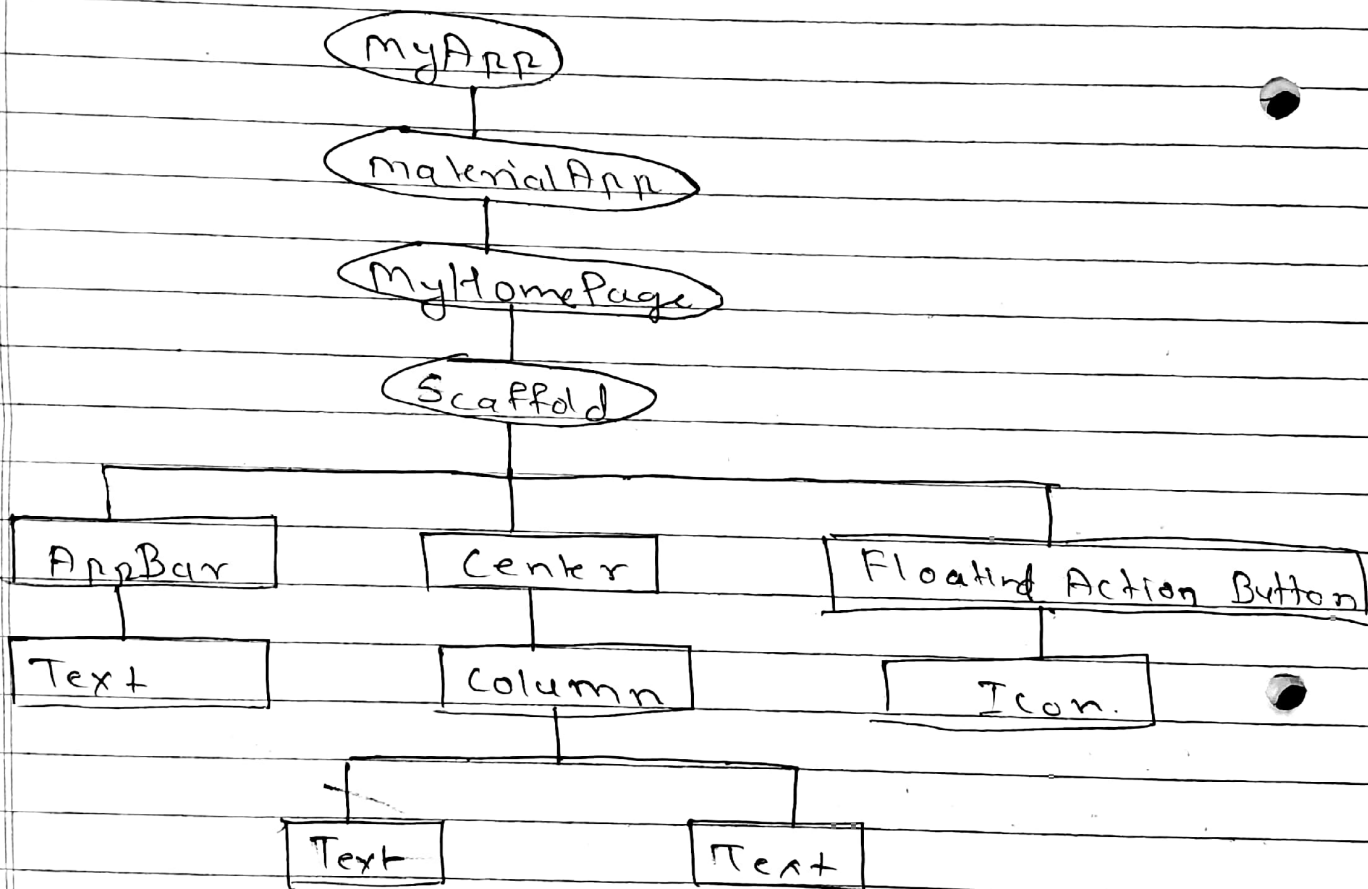 MyApp
materialApp
MyHomePage
Scaffold
AppBar Center Floatind Action Button
Text Column Icon.
Text Text